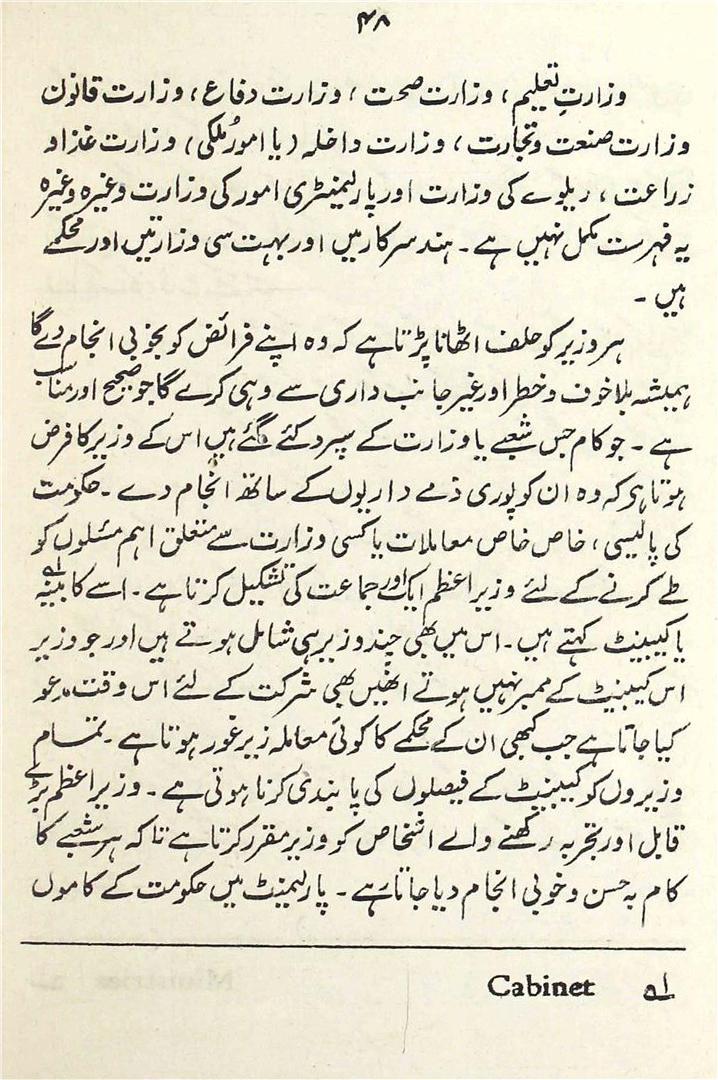 ۴۸
وزارتِ تعلیم، وزارت صحت، وزارت دفاع، وزارت قانون
وزارت صنعت و تجارت، وزارت داخلہ (یا امورِ ملکی) وزارت غذا و
زراعت، ریلوے کی وزارت اور پارلیمنٹری امور کی وزارت وغیرہ وغیرہ
یہ فہرست مکمل نہیں ہے۔ ہند سرکار میں اور بہت سی وزارتیں اور محکمے
ہیں۔
ہر وزیر کو حلف اٹھانا پڑتا ہے کہ وہ اپنے فرائض کو بخوبی انجام دے گا
ہمیشہ بلا خوف و خطر اور غیر جانب داری سے وہی کرے گا جو صحیح اور مناسب
ہے۔ جو کام جس شعبے یا وزارت کے سپرد کئے گئے ہیں اس کے وزیر کا فرض
ہوتا ہے کہ وہ ان کو پوری ذمے داریوں کے ساتھ انجام دے۔ حکومت
کی پالیسی، خاص خاص معاملات یا کسی وزارت سے متعلق اہم مسئلوں کو
طے کرنے کے لئے وزیر اعظم ایک اور جماعت کی تشکیل کرتا ہے۔ اسے کابینہ لہ
یا کیبینٹ کہتے ہیں۔ اس میں بھی چند وزیر ہی شامل ہوتے ہیں اور جو وزیر
اس کیبنیٹ کے ممبر نہیں ہوتے انھیں بھی شرکت کے لئے اس وقت مدعو
کیا جاتا ہے جب کبھی ان کے محکمے کا کوئی معاملہ زیر غور ہوتا ہے۔ تمام
وزیروں کو کیبنیٹ کے فیصلوں کی پابندی کرنا ہوتی ہے۔ وزیر اعظم بڑے
قابل اور تجربہ رکھنے والے اشخاص کو وزیر مقرر کرتا ہے تاکہ ہر شعبے کا
کام بہ حسن و خوبی انجام دیا جاتا رہے۔ پارلیمنٹ میں حکومت کے کاموں
لہ Cabinet